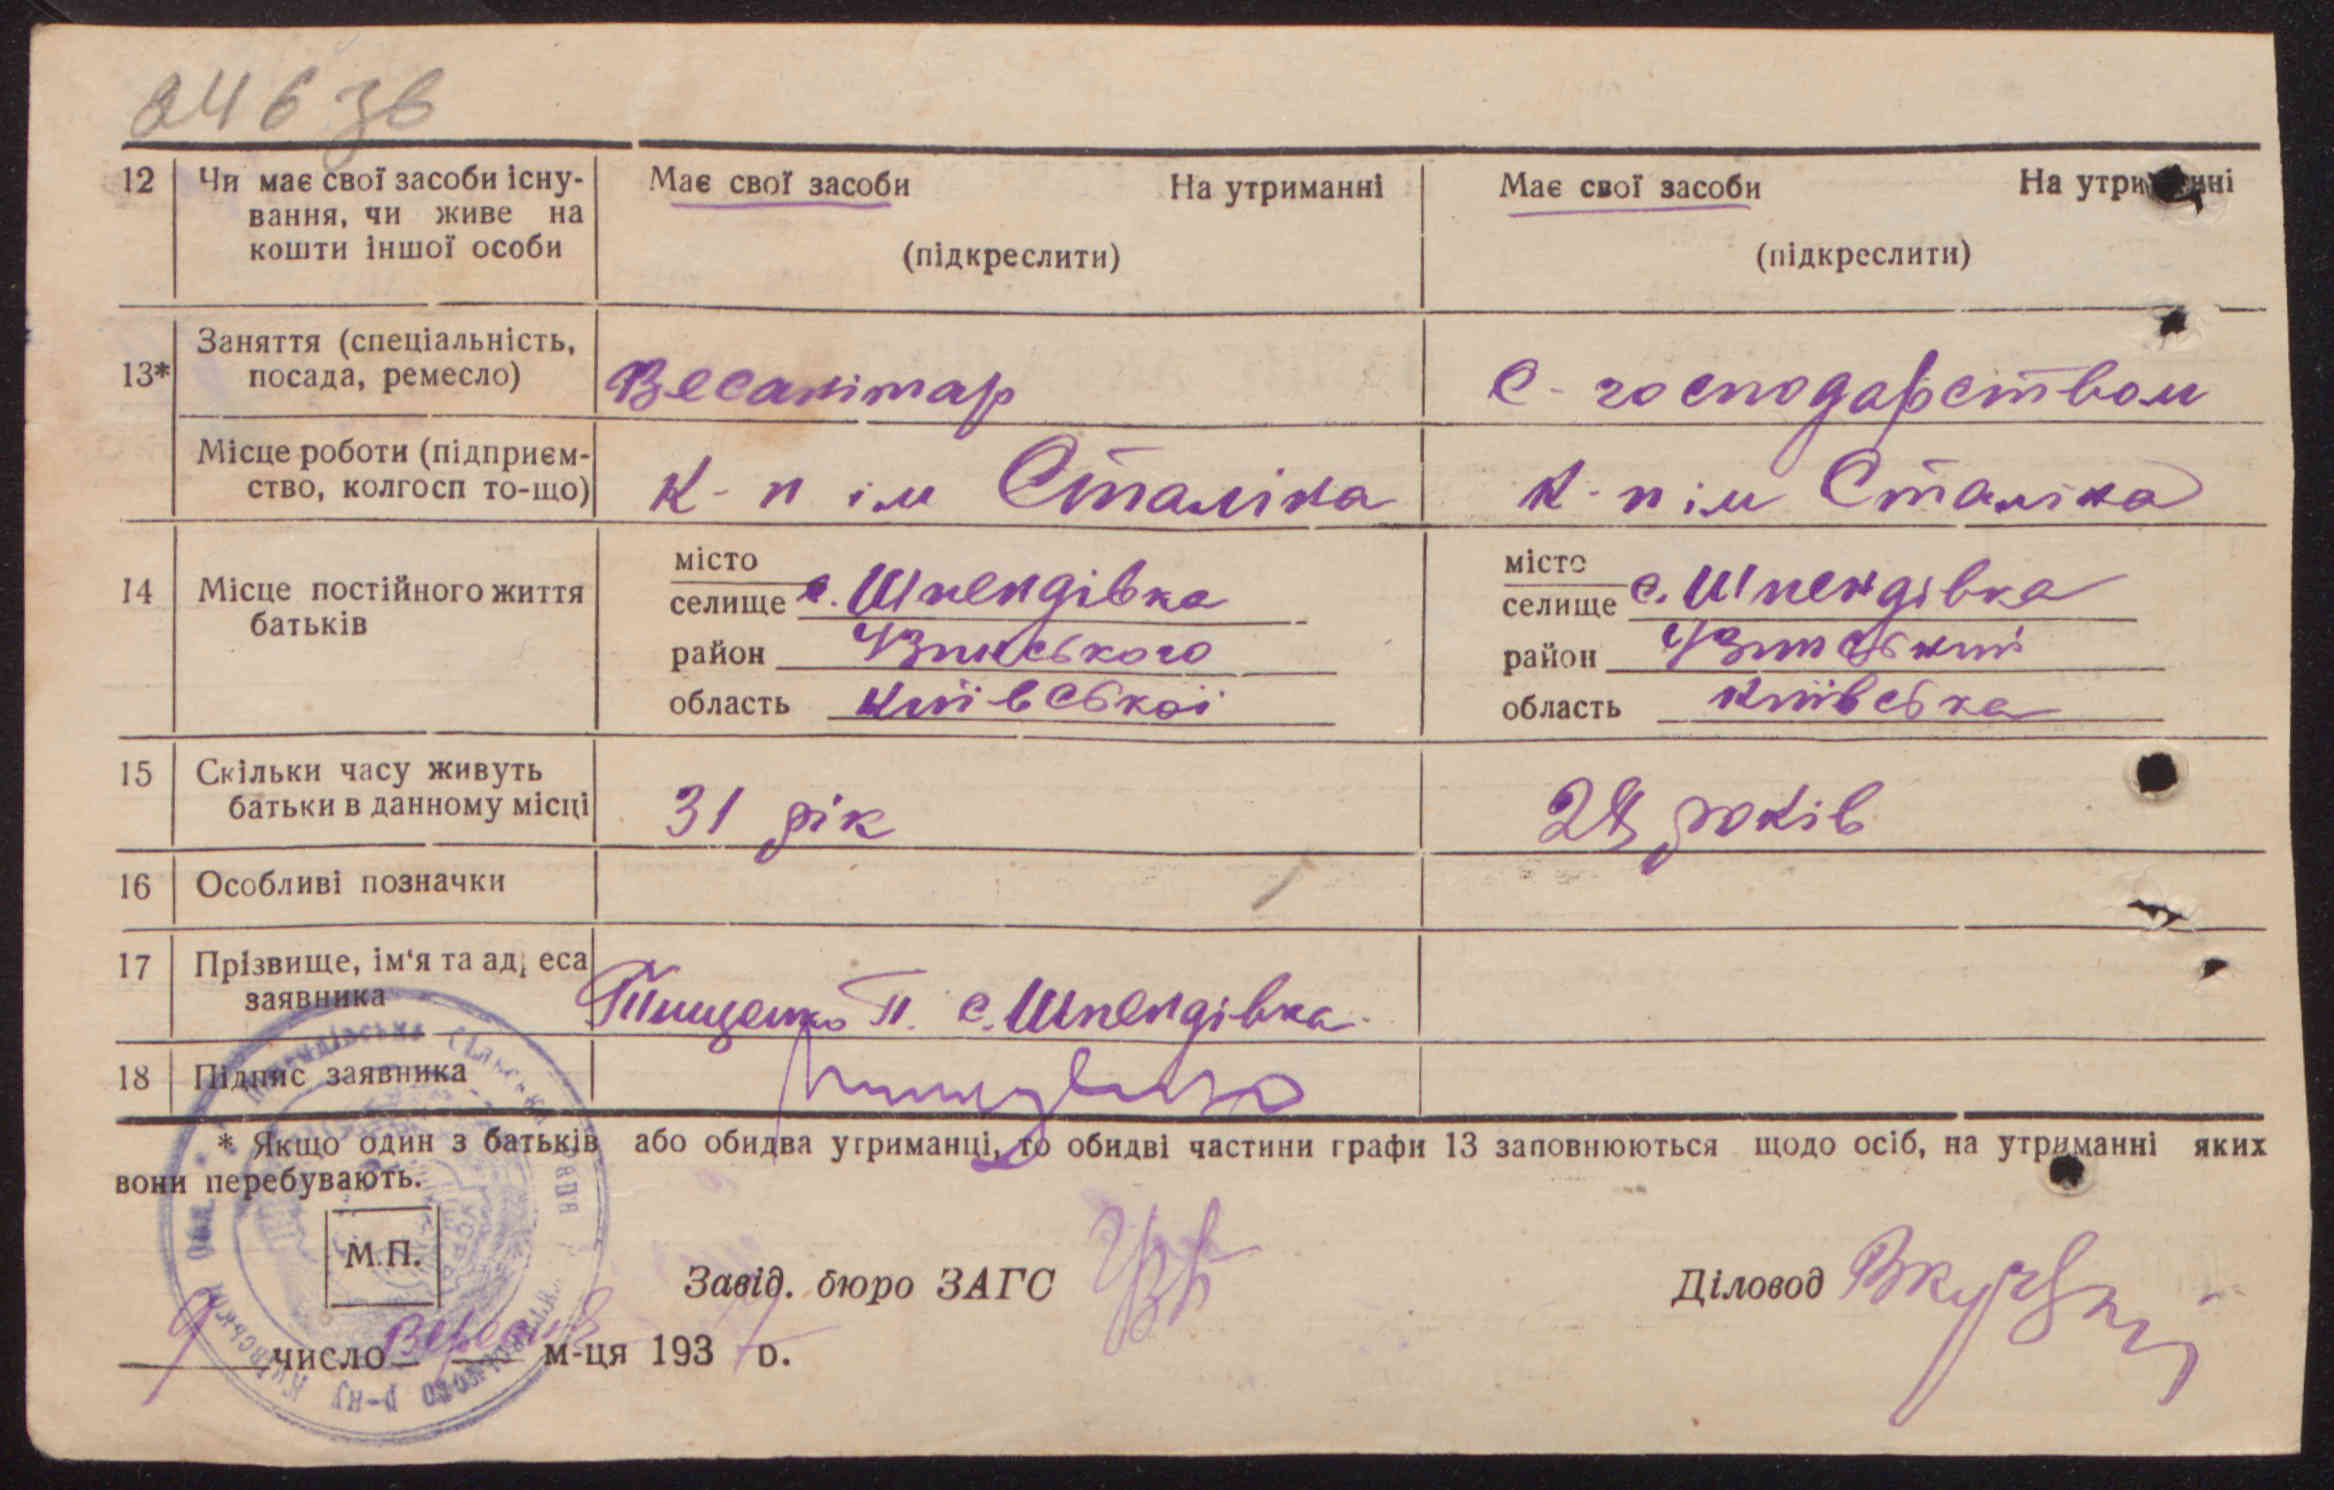 246 зв
12 Чи має свої засоби існу- Має свої засоби На утриманні Має свої засоби На утриманні
вання, чи живе на
кошти іншої особи (підкреслити) (підкреслити)
Заняття (спеціальність,
13* посада, ремесло) Весанітар С-господарством
Місце роботи (підприєм-
ство, колгосп то-що) К-п ім Сталіна К-п ім Сталіна
місто місто
14 Місце постійного життя селище с. Шпендівка селище с. Шпендівка
батьків район Узинського район Узинський
область Київської область Київська
15 Скільки часу живуть
батьки в данному місці 31 рік 28 років
16 Особливі позначки
17 Прізвище, ім'я та адреса
заявника Тищенко П. с. Шпендівка
18 Підпис заявника
* Якщо один з батьків або обидва утриманці, то обидві частини графи 13 заповнюються щодо осіб, на утриманні яких
вони перебувають.
М.П.
Завід. бюро ЗАГС Діловод
9 число Вересня м-ця 1937 р.